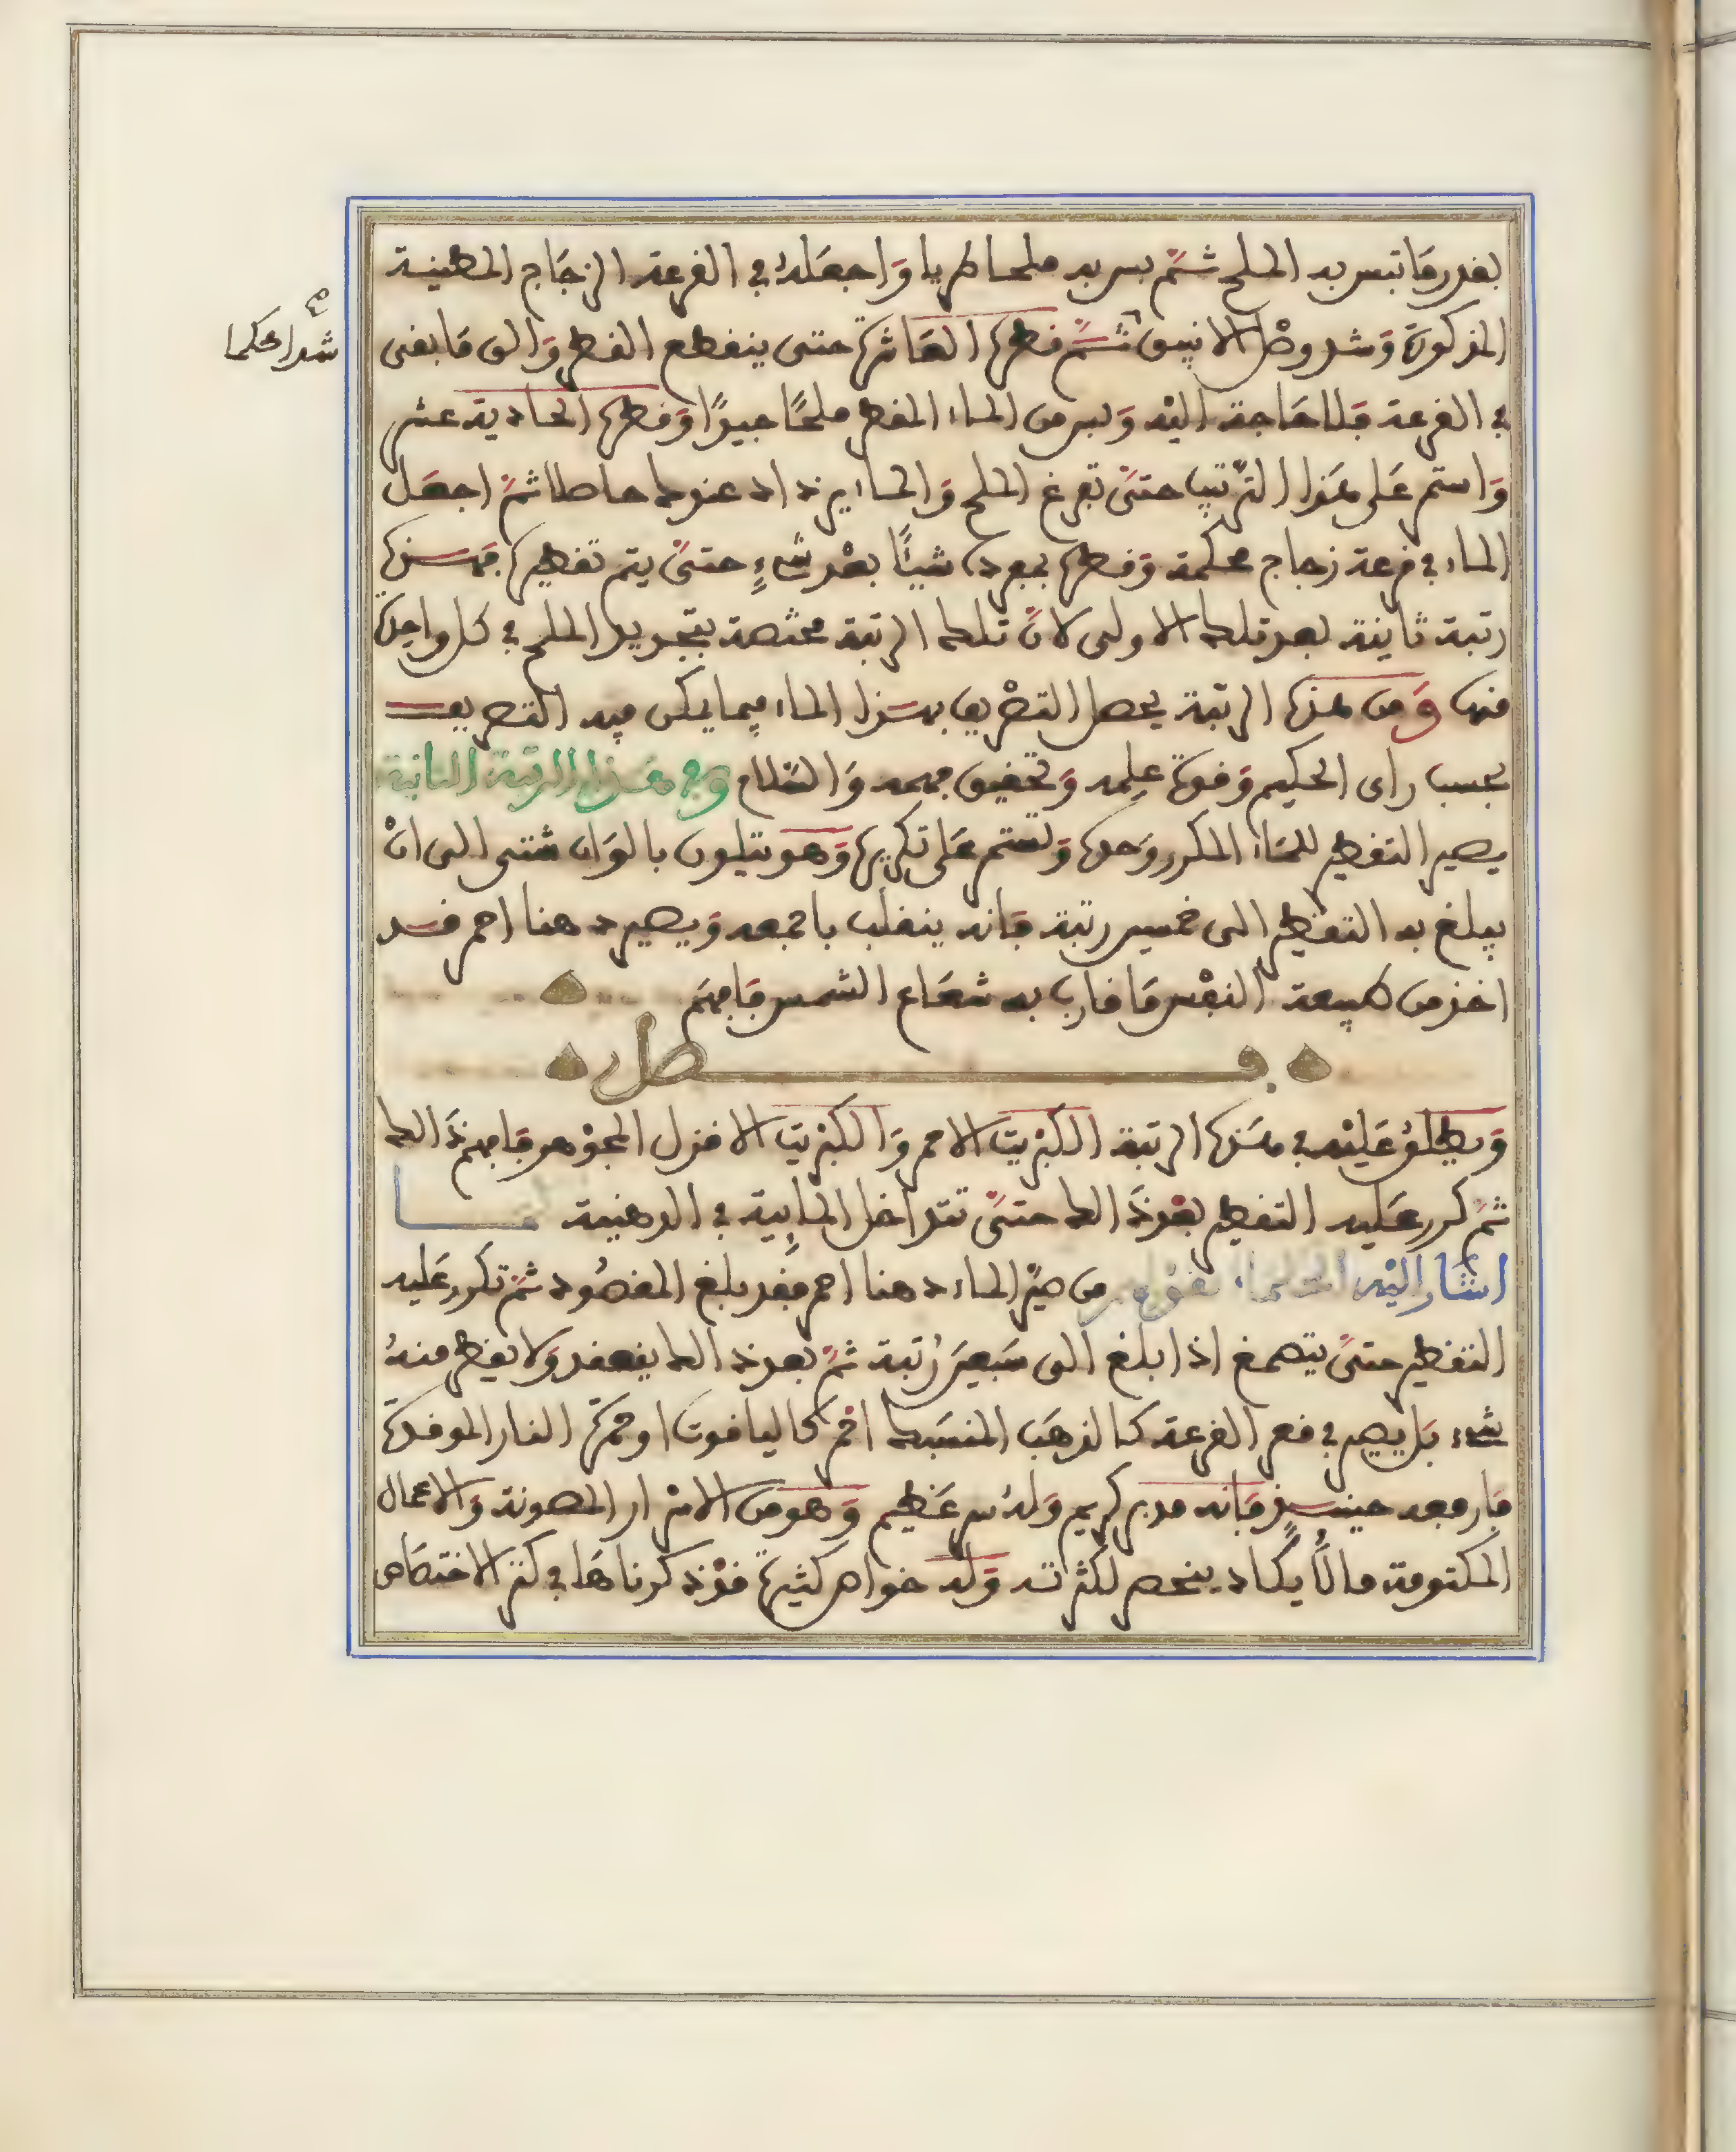 بقدر ما تبسس به الملح ثم بس به ملحا طريا واجعله في القرعة الزجاج المطينة
المذكورة وشد وصل الانبيق ثم قطرها العاشرة حتى ينقطع القطر والق ما بقى
شدا محكما
في القرعة فلا حاجة اليه وبس من الماء المقطر ملحا جيدا وقطرها الحادية عشر
واستمر على هذا الترتيب حتى تفرغ الملح والماء يزداد عندك حاصلا ثم اجعل
الماء في قرعة زجاج محكمة وقطره بمفرده شيئا بعد شيء حتى يتم تقطيره فهذه
رتبة ثانية بعد تلك الاولى لان تلك الرتبة مختصة بتجديد الملح في كل واحدة
منها ومن هذه الرتبة يحصل التصريف بهذا الماء فيما يمكن فيه التصريف
بحسب راى الحكيم وقوة علمه وتحقيق فهمه والسلام وفي هذا الرتبة الثانية
يصير التقطير للماء المكرر وحده وتستمر على تكريره وهو يتلون بالوان شتى الى ان
يبلغ به التقطير الى خمسين رتبة فانه ينقلب باجمعه ويصير دهنا احمر قد
اخذ من طبيعة النفس ما قارب به شعاع الشمس فافهم
فصل
ويطلق عليه في هذه الرتبة الكبريت الاحمر والكبريت الاخزل الجوهر فافهم ذالك
ثم كرر عليه التقطير بعد ذالك حتى تتداخل المايية في الدهنية كما
اشار اليه الحكماء بقولهم من صير الماء دهنا احمر فقد بلغ المقصود ثم تكرر عليه
التقطير حتى يتصمغ اذا بلغ الى سبعين رتبة ثم بعد ذالك يعقد ولا يقطر منه
شيء بل يصير في قعر القرعة كالذهب المنسبك احمر كالياقوت او حمرة النار الموقدة
فارفعه حينئذ فانه مدبر كريم وله سر عظيم وهو من الاسرار المصونة والاعمال
المكتومة ما لا يكاد ينحصر لكثرته وله خواص كثيرة قد ذكرناها في كنز الاختصاص